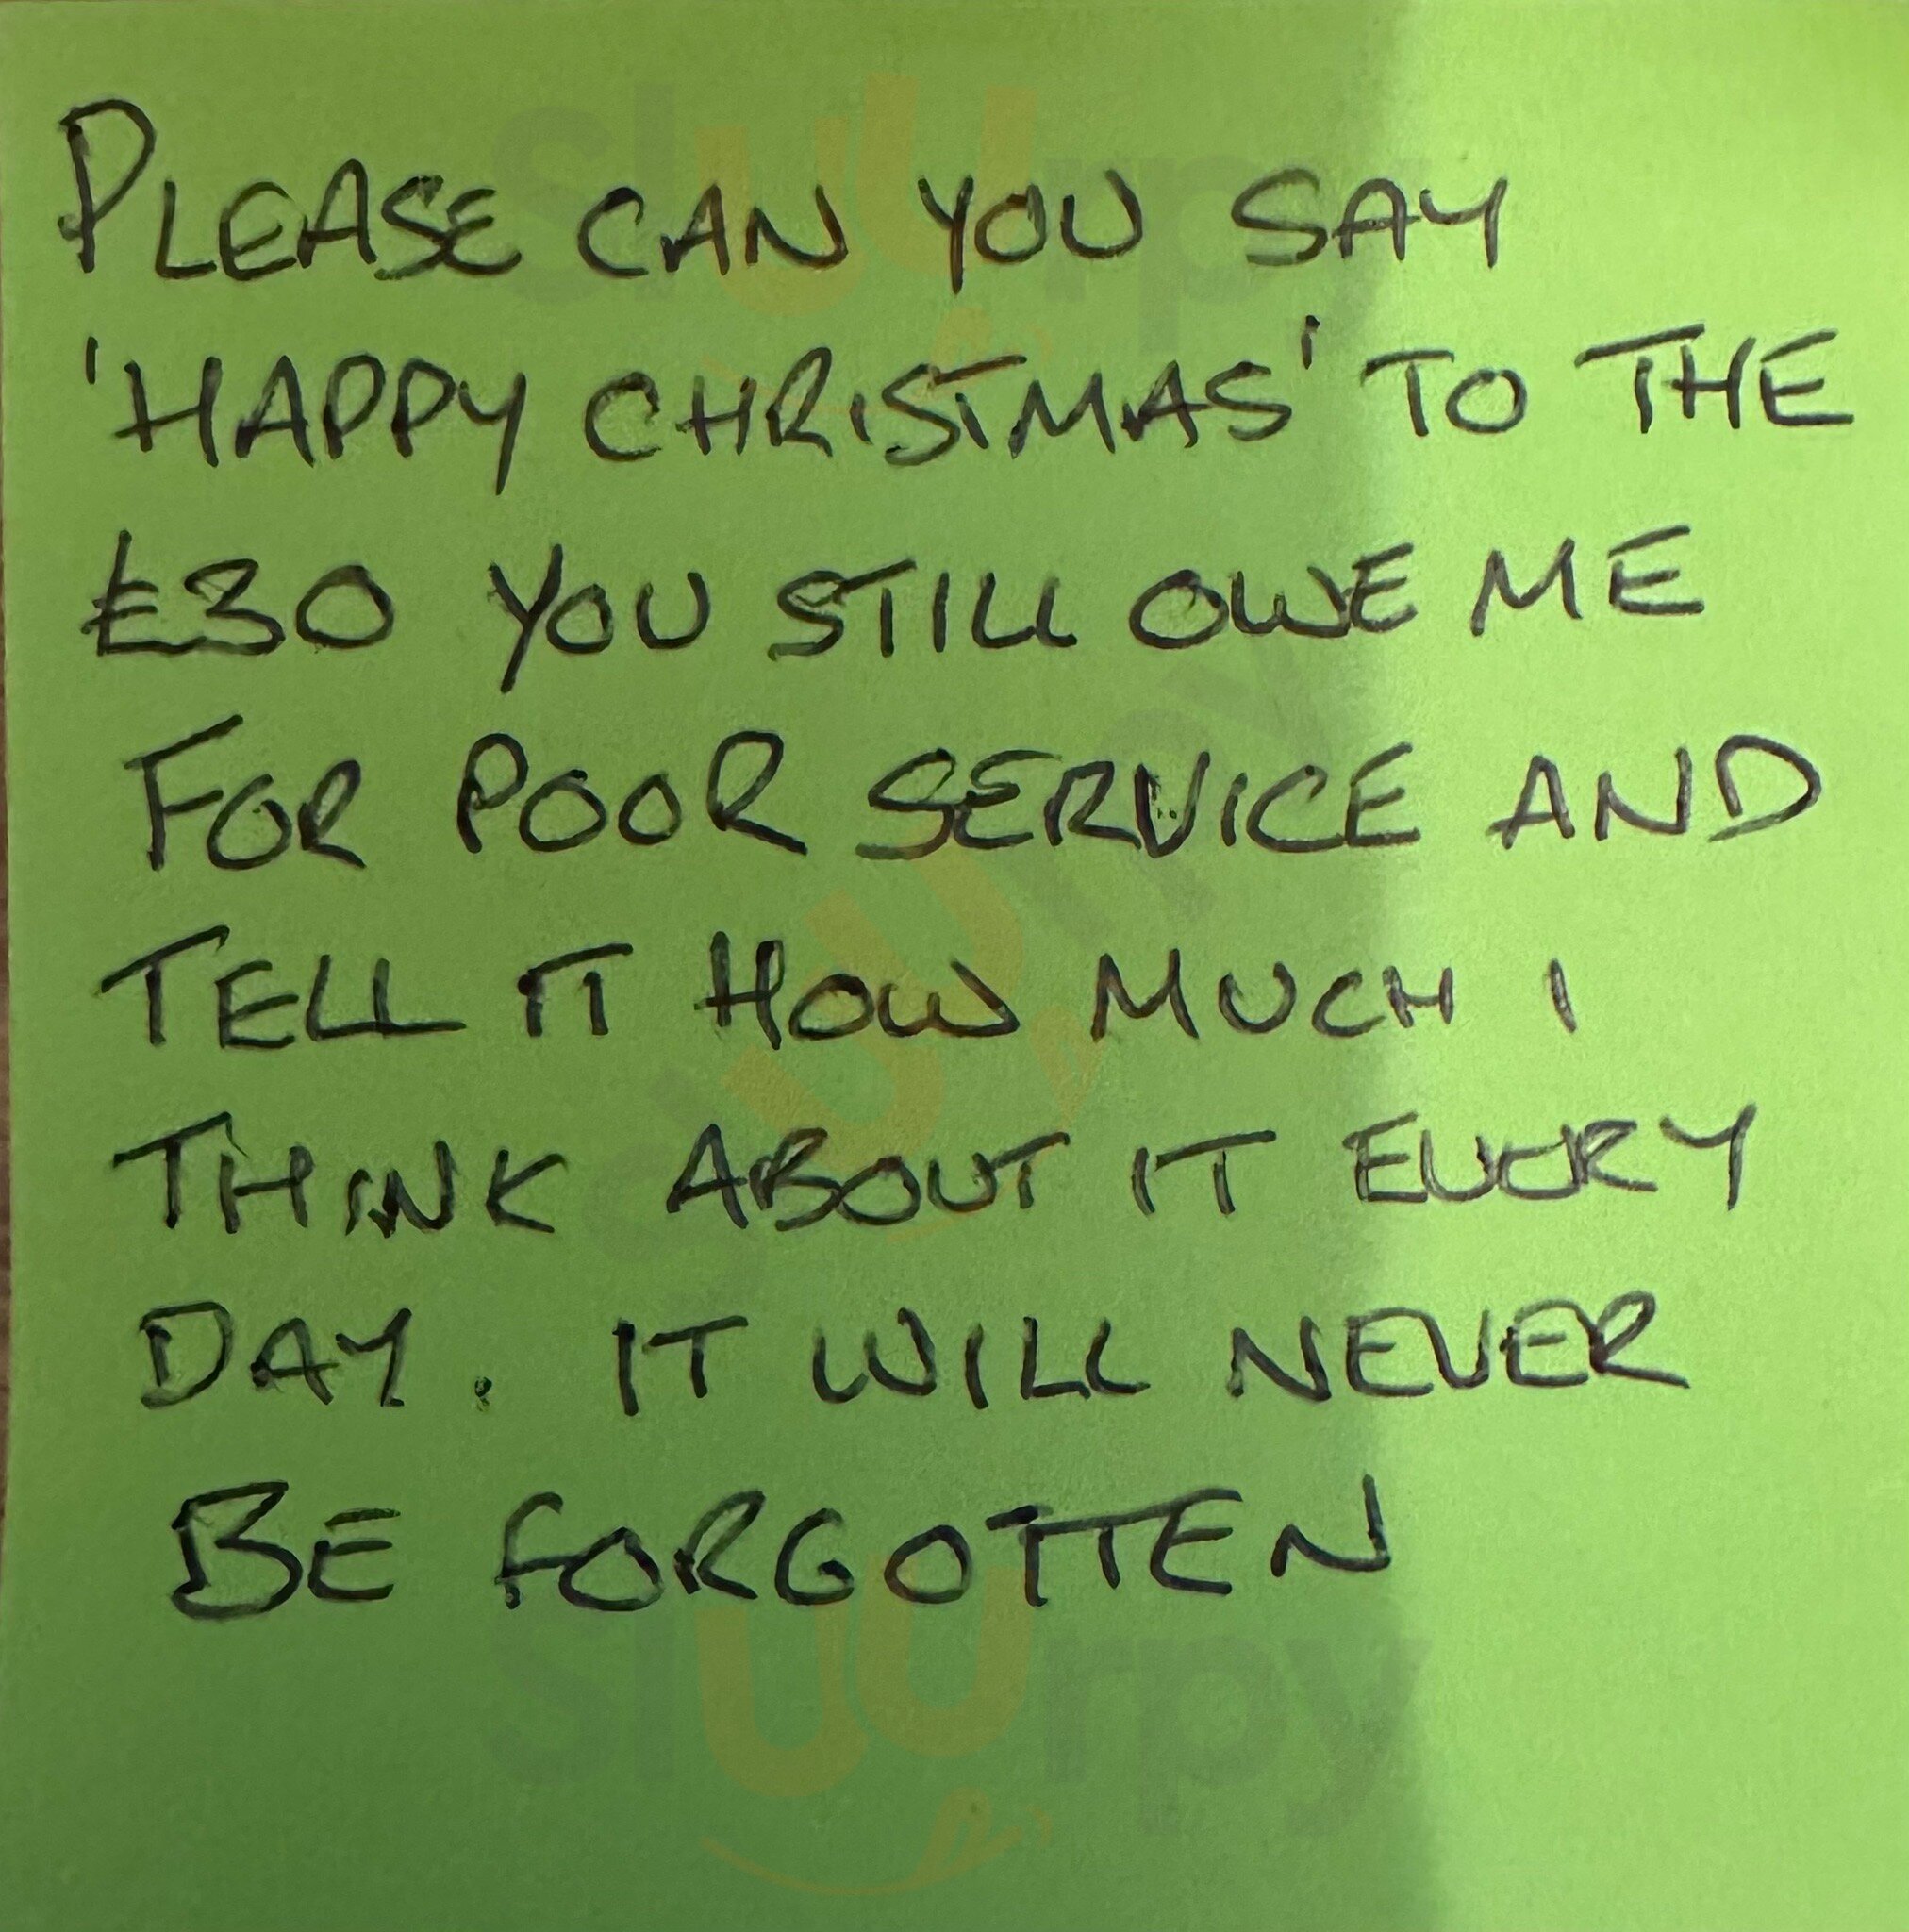 PLEASE CAN YOU SAY
'HAPPY CHRISTMAS' TO THE
£30 YOU STILL OWE ME
FOR POOR SERVICE AND
TELL IT HOW MUCH I
THINK ABOUT IT EVERY
DAY. IT WILL NEVER
BE FORGOTTEN
sluurpy
sluurpy
sluurpy